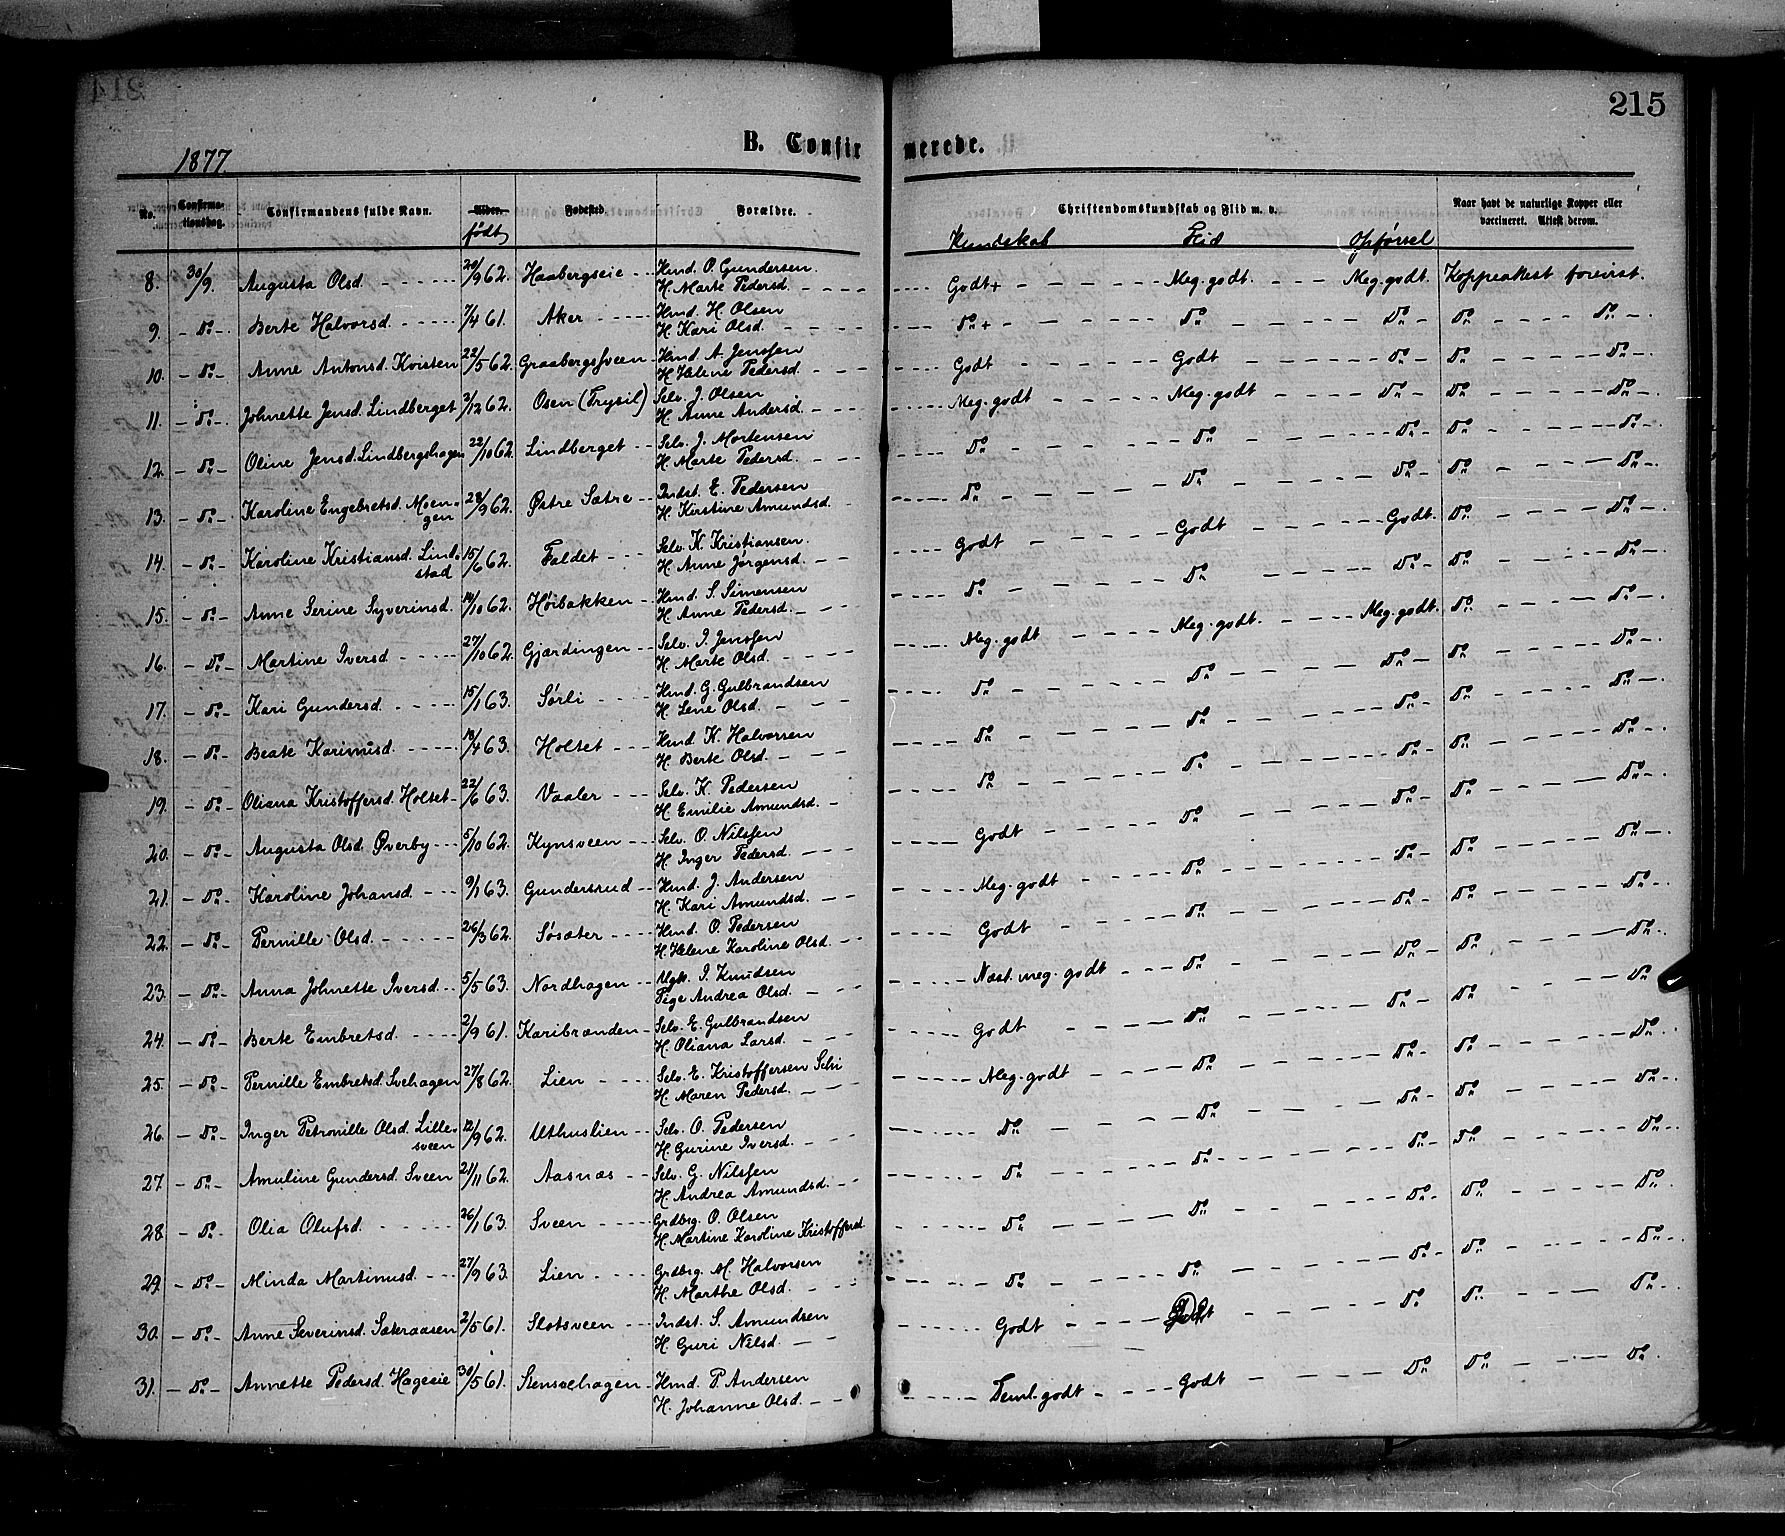 215
B. Confirmerede.
1877.
No. Confirmationsdag. Confirmandens fulde Navn. Alder. født Fødested. Forældre. Christendomskundskab og Flid m. v. Naar havt de naturlige Kopper eller vaccineret. Attest derom.
Kundskab Flid Opførsel
8. 30/9. Augusta Olsd. 20/9 62. Haabergseie Hmd. O. Gundersen. H. Marte Pedersd. Godt+ Meg. godt. Meg. godt. Koppeattest forevist.
9. Do Berte Halvorsd. 7/4 61. Aker Hmd. H. Olsen H. Kari Olsd. Do+ Do Do Do Do
10. Do Anne Antonsd. Kvisten 22/5 62. Graabergssveen Hmd. A. Jenssen H. Helene Pedersd. Godt Godt Do Do Do
11. Do Johnette Jensd. Lindberget 2/12 62. Osen (Trysil) Selv. J. Olsen H. Anne Andersd. Meg. godt Meg. godt Do Do Do
12. Do Oline Jensd. Lindbergshagen 22/10 62. Lindberget Selv. J. Mortensen H. Marte Pedersd. Do Do Do Do Do
13. Do Karoline Engebretsd. Moengen 28/9 62. Østre Sætre Indst. E. Pedersen H. Kirstine Amundsd. Do Do Do Do Do
14. Do Karoline Kristiansd. Lindstad 15/6 62. Faldet Selv. K. Kristiansen. H. Anne Jørgensd. Godt Godt Godt. Do Do
15. Do Anne Serine Syverinsd. 14/10 62. Høibakken Hmd. S. Simensen H. Anne Pedersd. Do Do Do Do Do
16. Do Martine Iversd. 27/10 62. Gjærdingen Selv. I. Jenssen H. Marte Olsd. Meg. godt Meg. godt. Meg. godt. Do Do
17. Do Kari Gundersd. 15/1 63. Sørli Hmd. G. Gulbrandsen H. Lene Olsd. Do Do Do Do Do
18. Do Beate Karinusd. 18/4 63. Holtet Hmd. K. Halvorsen H. Berte Olsd. Do Do Do Do Do
19. Do Oliana Kristoffersd. Holtet 22/6 63. Vaaler Selv. K. Pedersen H. Emilie Amundsd. Do Do Do Do Do
20. Do Augusta Olsd. Øverby 5/10 62. Kynsveen Selv. O. Nilssen H. Inger Pedersd. Godt Do Do Do Do
21. Do Karoline Johansd. 9/1 63. Gundersrud Hmd. J. Andersen H. Kari Amundsd. Meg. godt Do Do Do Do
22. Do Pernille Olsd. 26/3 62. Søsæter Hmd. O. Pedersen H. Helene Karoline Olsd. Godt Do Do Do Do
23. Do Anna Johnette Iversd. 5/5 63. Nordhagen Ugk. I. Knudsen Pige Andrea Olsd. Næst. meg. godt Do Do Do Do
24. Do Berte Embretsd. 2/9 61. Karibranden Selv. E. Gulbrandsen H. Oliana Larsd. Godt Do Do Do Do
25. Do Pernille Embretsd. Svehagen 27/8 62. Lien Selv. E. Kristoffersen H. Maren Pedersd. Meg. godt Do Do Do Do
26. Do Inger Petronille Olsd. Lillesveen 12/9 62. Uthuslien Selv. O. Pedersen H. Gurine Iversd. Do Do Do Do Do
27. Do Amuline Gundersd. Sveen 21/11 62. Aasnæs Selv. G. Nilssen H. Andrea Amundsd. Do Do Do Do Do
28. Do Olia Olufsd. 26/1 63. Sveen Grdbrg. O. Olsen H. Martine Karoline Kristoffersd. Do Do Do Do Do
29. Do Minda Martinusd. 27/9 63. Lien Grdbrg. M. Halvorsen H. Marthe Olsd. Do Do Do Do Do
30. Do Anne Severinsd. Sæteraasen 2/5 61. Slotsveen Indst. S. Amundsen H. Guri Nilsd. Godt Godt Do Do Do
31. Do Annette Pedersd. Hageeie 30/5 61. Stensvehagen Hmd. P. Andersen H. Johanne Olsd. Teml. godt Godt Do Do Do